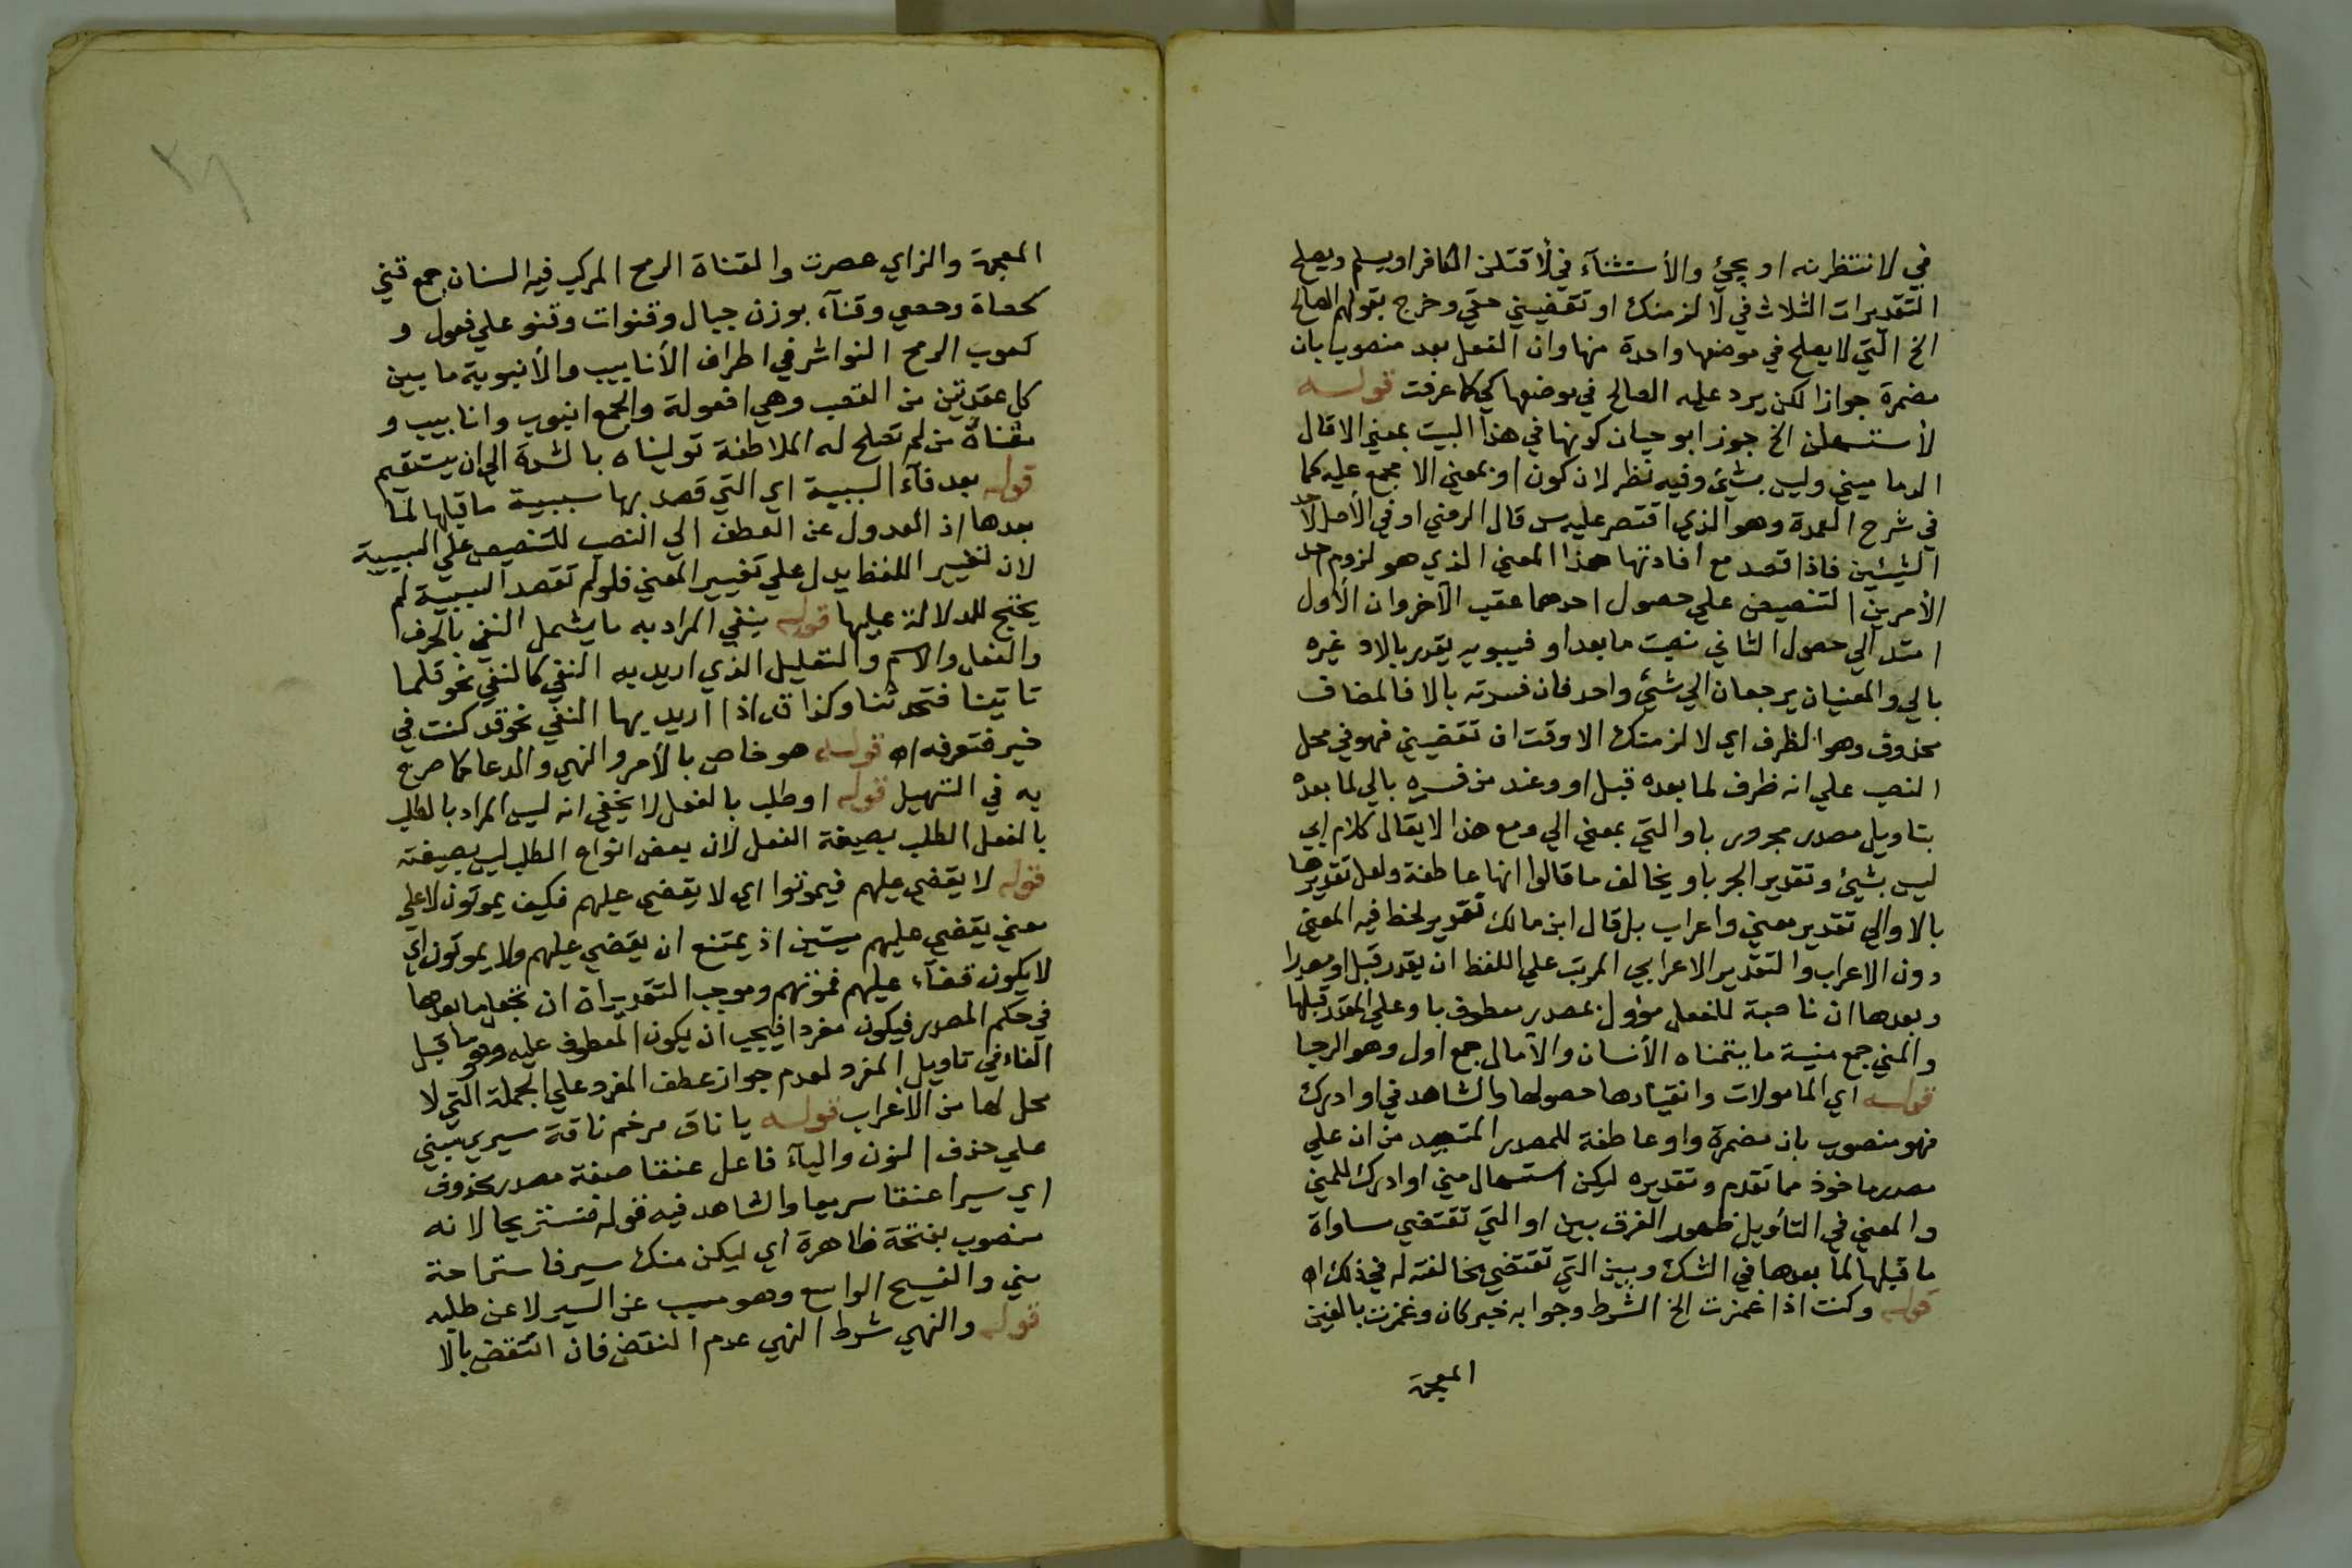 في لانتظرنه او يجئ والأستثنآء في لأقتلن الكافر اويسلم ويصلح
التقديرات الثلاث في لالزمنك او تقضيني حقي وخرج بقولهم الصالح
الخ التي لايصلح في موضعها واحدة منها وان الفعل بعد منصوب بان
مضمرة جوازا لكن يرد عليه الصالح في موضعها كي كما عرفت قوله
لأستسهلن الخ جوز ابو حيان كونها في هذا البيت بمعني الا قال
الدماميني وليس بشئ وفيه نظر لان كون او بمعني الا مجمع عليه كما
في شرح العمدة وهو الذي اقتصر عليه س قال الرضي او في الأصل لاحد
الشيئين فاذا قصد مع افادتها هذا المعني الذي هو لزوم احد
الأمرين التنصيص علي حصول احدهما عقب الآخر وان الأول
امتد الي حصول الثاني نصبت ما بعد او فسيبويه يقدر بالا وغيره
بالي والمعنيان يرجعان الي شئ واحد فان فسرته بالا فالمضاف
محذوف وهو الظرف اي لالزمنك الا وقت ان تقضيني فهو في محل
النصب علي انه ظرف لما بعده قبل او وعند من فسره بالي لما بعده
بتاويل مصدر مجرور باو التي بمعني الي ومع هذا لا يقال كلام ابي
ليس بشئ وتقدير الجر باو يخالف ما قالوا انها عاطفة ولعل تقديرها
بالا والي تقدير معني واعراب بل قال ابن مالك تقدير لحظ فيه المعني
دون الاعراب والتقدير الاعرابي المرتب علي اللفظ ان يقدر قبل او مصدرا
وبعدها ان ناصبة للفعل مؤول بمصدر معطوف باو علي المقدر قبلها
والمني جمع منية ما يتمناه الأنسان والآمال جمع اول وهو الرجا
قوله اي المامولات وانقيادها حصولها والشاهد في او ادرك
فهو منصوب بان مضمرة واو عاطفة للمصدر المنسبك من ان علي
مصدر ماخوذ مما تقدم وتقديره ليكن استسهال مني او ادرك للمني
والمعني في التأويل ظهور الفرق بين او التي تقتضي مساواة
ما قبلها لما بعدها في الشك وبين التي تقتضي مخالفته له في ذلك اه
قوله وكنت اذا غمزت الخ الشرط وجوابه خبر كان وغمزت بالغين
المعجمة
المعجمة والزاي عصرت والقناة الرمح المركب فيه السنان جمع قني
كحصاة وحصي وقنآء بوزن جبال وقنوات وقنو علي فعول و
كعوب الرمح النواشر في اطراف الأنابيب والأنبوبة ما بين
كل عقدتين من القصب وهي افعولة والجمع انبوب وانابيب و
مقناه من لم تصلح له الملاطفة توليناه بالشدة الي ان يستقيم
قوله بعد فآء السببية اي التي قصد بها سببية ماقبلها لما
بعدها اذ العدول عن العطف الي النصب للتنصيص علي السببية
لان تغيير اللفظ يدل علي تغيير المعني فلو لم تقصد السببية لم
يحتج للدلالة عليها قوله بنفي المراد به ما يشمل النفي بالحرف
والفعل والاسم والتقليل الذي اريد به النفي كالنفي نحو قلما
تاتينا فتحدثنا وكذا قد اذا اريد بها النفي نحو قد كنت في
خير فتعرفه اه قوله هو خاص بالأمر والنهي والدعا كما صرح
به في التسهيل قوله او طلب بالفعل لا يخفي انه ليس المراد بالطلب
بالفعل الطلب بصيغة الفعل لان بعض انواع الطلب ليس بصيغته
قوله لا يقضي عليهم فيموتوا اي لا يقضي عليهم فكيف يموتون لا علي
معني يقضي عليهم ميتين اذ يمتنع ان يقضي عليهم ولا يموتون اي
لا يكون قضآء عليهم فموتهم وموجب التقدير ان ان تجعل ما بعدها
في حكم المصدر فيكون مفردا فيجب ان يكون المعطوف عليه وهو ما قبل
الفاء في تاويل المفرد لعدم جواز عطف المفرد علي الجملة التي لا
محل لها من الأعراب قوله يا ناق مرخم ناقة سيري مبني
علي حذف النون واليآء فاعل عنقا صفة مصدر محذوف
اي سيرا عنقا سريعا والشاهد فيه قوله فنستريحا لانه
منصوب بفتحة ظاهرة اي ليكن منك سير فاستراحة
مني والفسيح الواسع وهو مسبب عن السير لا عن طلبه
قوله والنهي شرط النهي عدم النقض فان انتقض بالا